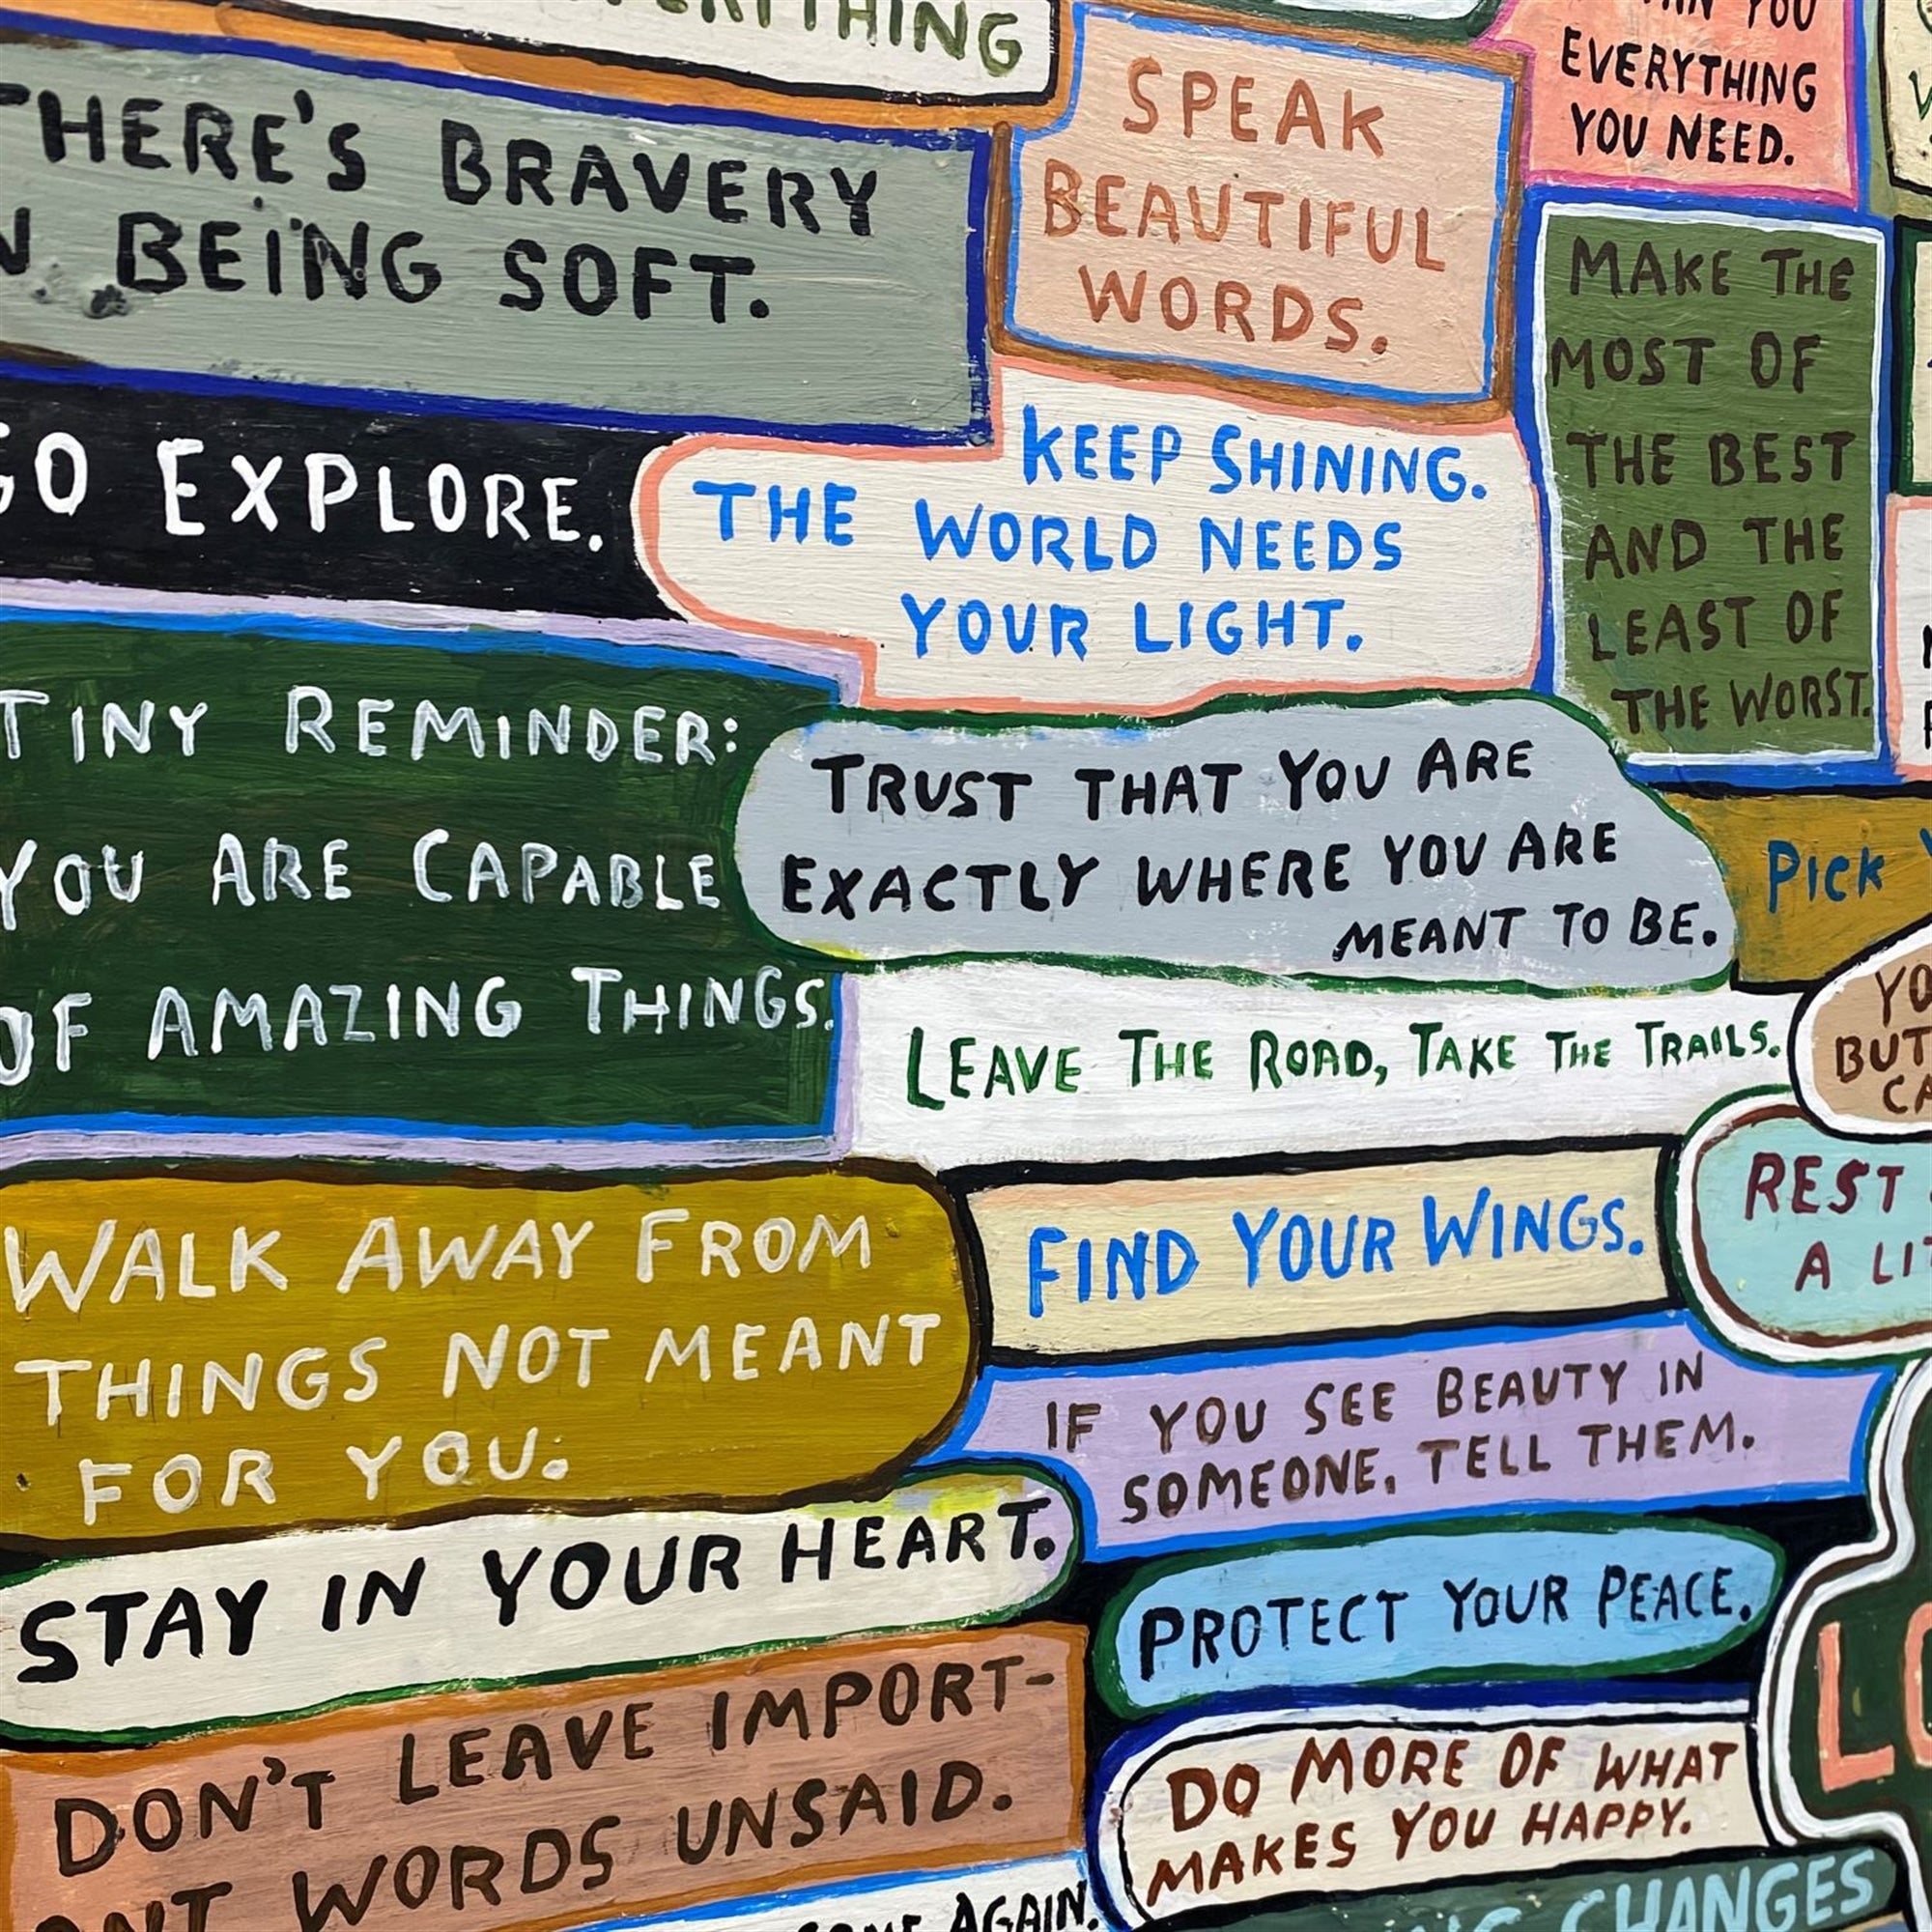 SPEAK
BEAUTIFUL
WORDS.
YOU
EVERYTHING
YOU NEED.
THERE'S BRAVERY
BEING SOFT.
MAKE THE
MOST OF
THE BEST
AND THE
LEAST OF
THE WORST.
GO EXPLORE.
KEEP SHINING.
THE WORLD NEEDS
YOUR LIGHT.
TINY REMINDER:
YOU ARE CAPABLE
OF AMAZING THINGS.
TRUST THAT YOU ARE
EXACTLY WHERE YOU ARE
MEANT TO BE.
PICK
LEAVE THE ROAD, TAKE THE TRAILS.
BUT
WALK AWAY FROM
THINGS NOT MEANT
FOR YOU.
FIND YOUR WINGS.
REST
A
IF YOU SEE BEAUTY IN
SOMEONE, TELL THEM.
STAY IN YOUR HEART.
PROTECT YOUR PEACE.
DON'T LEAVE IMPORT-
ANT WORDS UNSAID.
DO MORE OF WHAT
MAKES YOU HAPPY.
AGAIN.
CHANGES